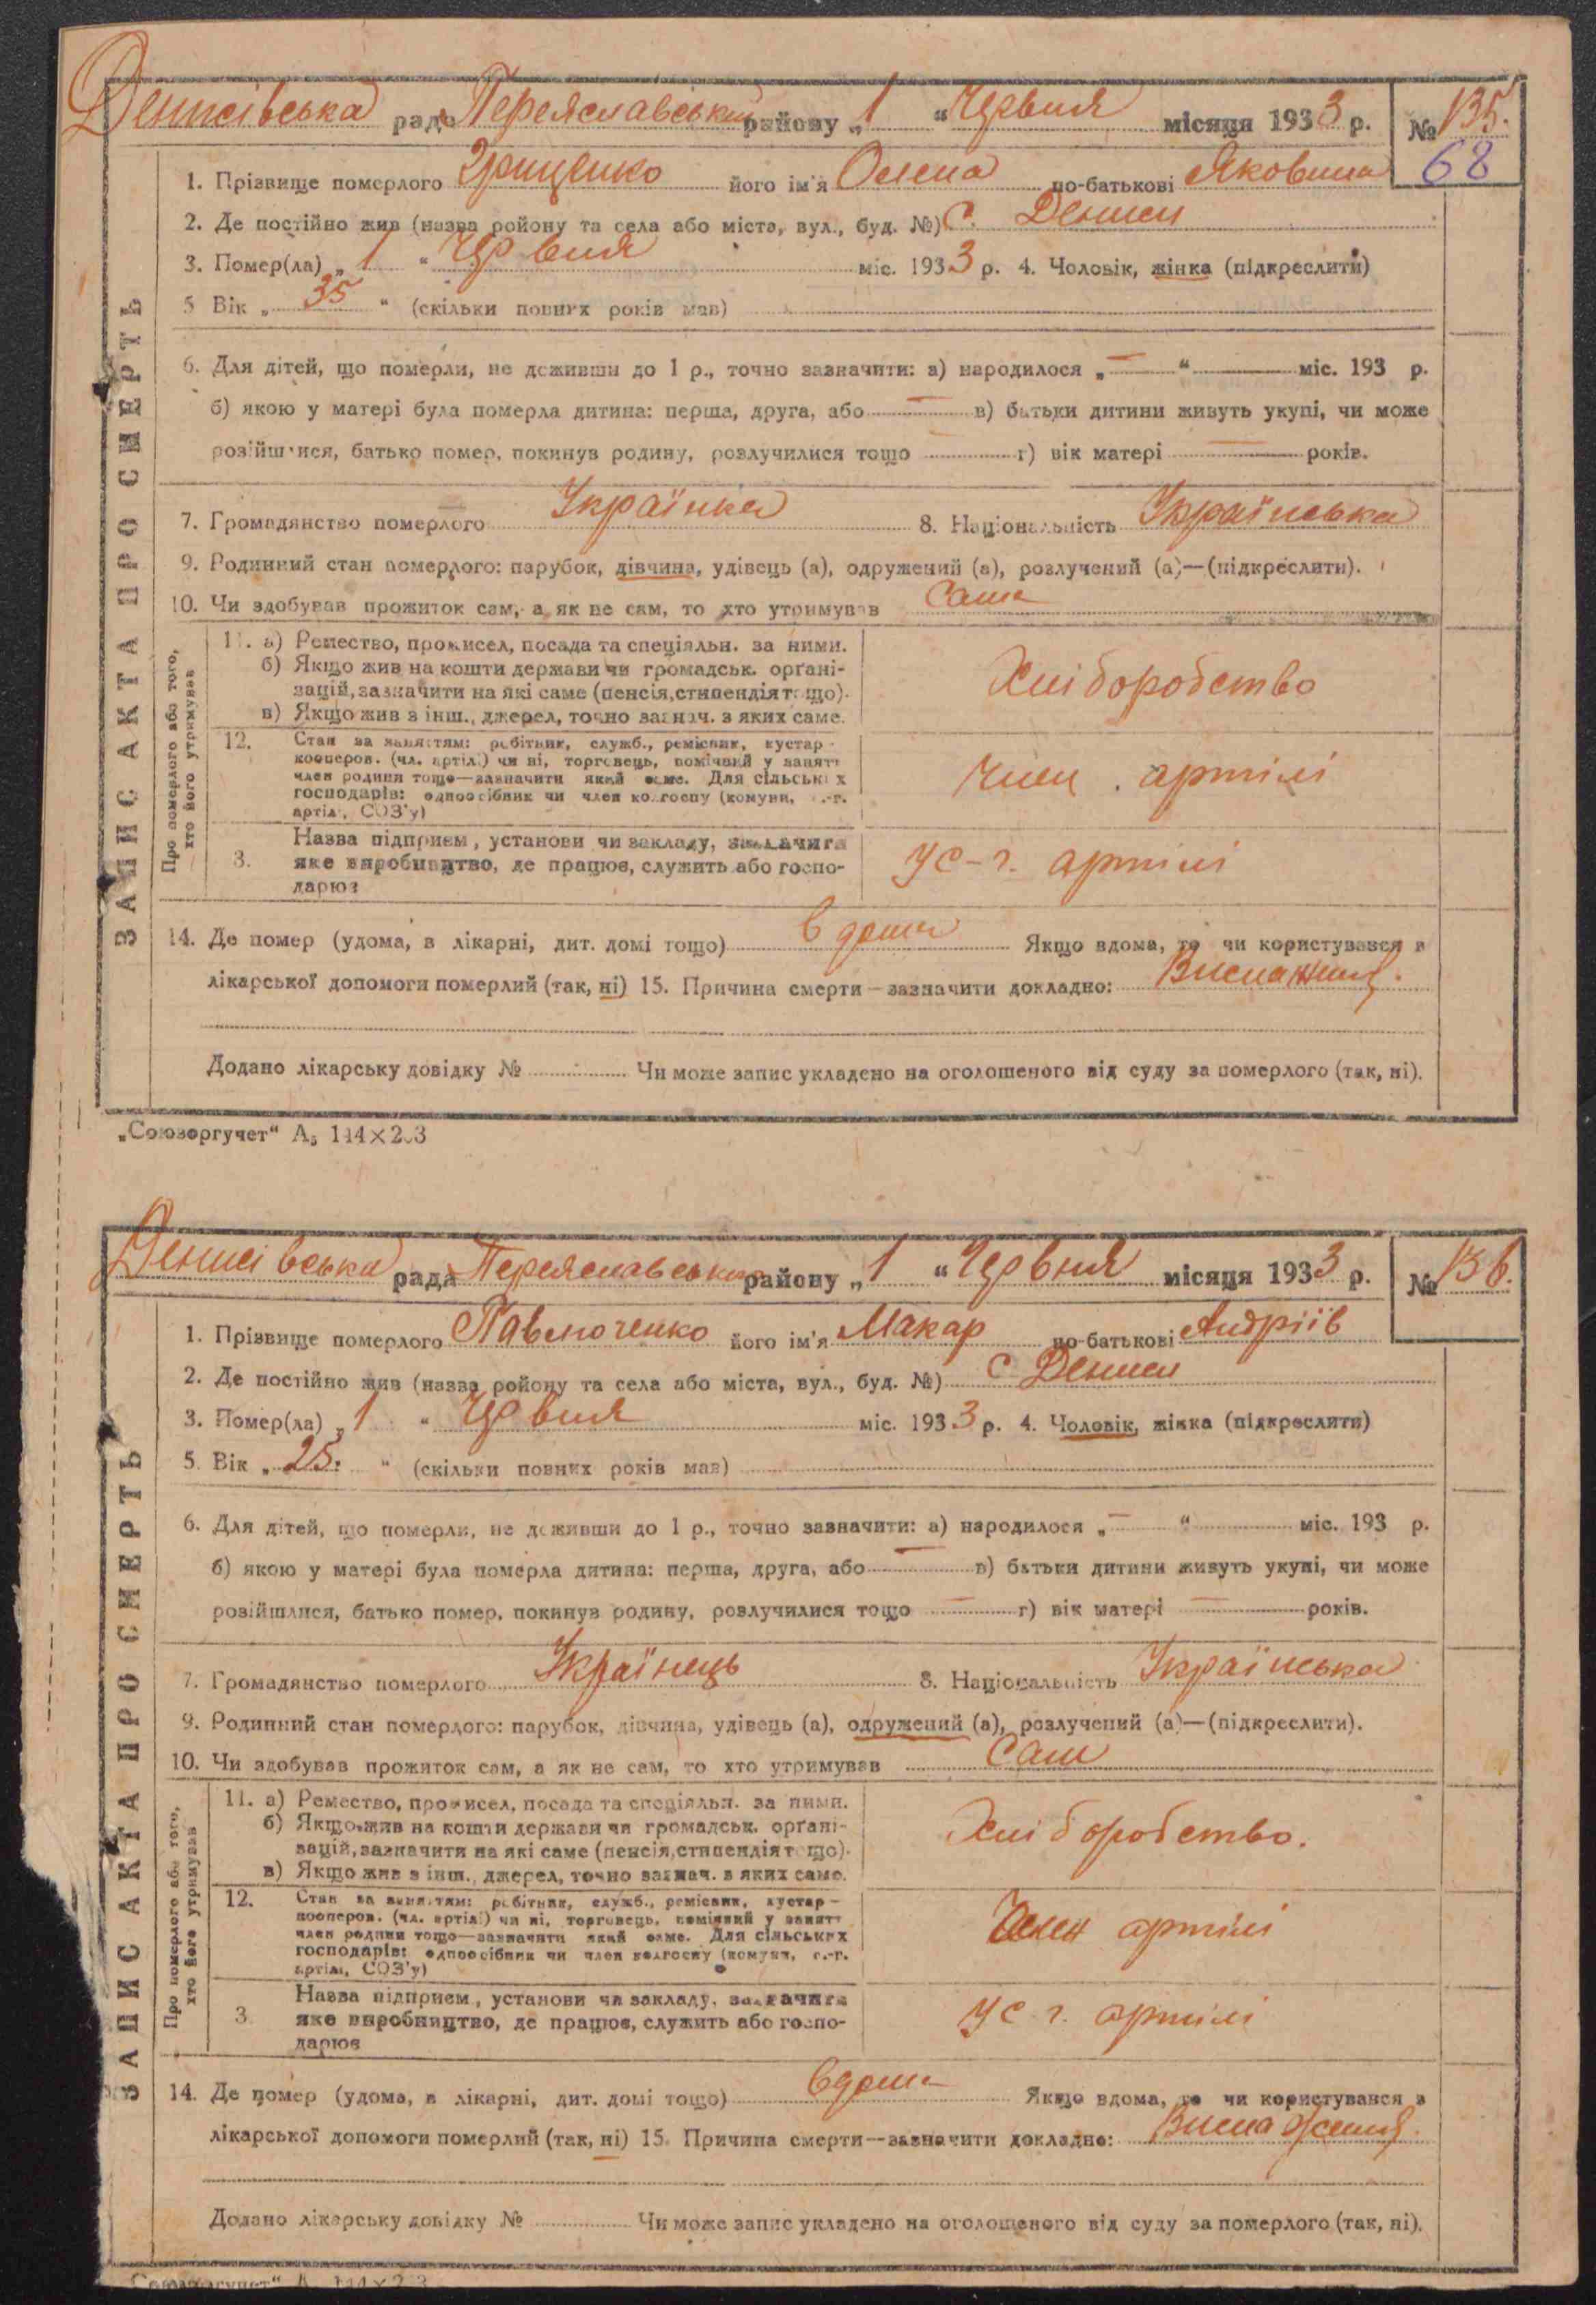 Денисівська рада Переяславський району „1“ Червня місяця 1933 р. № 135.
68
1. Прізвище померлого Грищенко його ім'я Олена по-батькові Яковлина
2. Де постійно жив (назва ройону та села або міста, вул., буд. №) С. Дениси
3. Помер(ла) „1“ Червня міс. 1933 р. 4. Чоловік, жінка (підкреслити)
5 Вік „35“ (скільки повних років мав)
6. Для дітей, що померли, не доживши до 1 р., точно зазначити: а) народилося „—“ — міс. 193 р.
б) якою у матері була померла дитина: перша, друга, або — в) батьки дитини живуть укупі, чи може
розійшлися, батько помер, покинув родину, розлучилися тощо — г) вік матері — років.
7. Громадянство померлого Українка 8. Національність Українська
9. Родинний стан померлого: парубок, дівчина, удівець (а), одружений (а), розлучений (а)—(підкреслити).
10. Чи здобував прожиток сам, а як не сам, то хто утримував Сама
ЗАПИС АКТА ПРО СМЕРТЬ
Про померлого або того, хто його утримував
11. а) Ремество, промисел, посада та спеціяльн. за ними.
б) Якщо жив на кошти держави чи громадськ. орґані-
зацій, зазначити на які саме (пенсія, стипендія тощо).
в) Якщо жив з інш., джерел, точно зазнач. з яких саме.
Хліборобство
12. Стан за заняттям: робітник, служб., ремісник, кустар-
кооперов. (чл. артіл.) чи ні, торговець, помічний у занятт
член родини тощо—зазначити який саме. Для сільських
господарів: одноосібник чи член колгоспу (комуни, с.-г.
артіл., СОЗ'у)
Член артілі
3. Назва підприєм, установи чи закладу, зазначити
яке виробництво, де працює, служить або госпо-
дарює
У с-г. артілі
14. Де помер (удома, в лікарні, дит. домі тощо) в дома Якщо вдома, то чи користувався з
лікарської допомоги померлий (так, ні) 15. Причина смерти—зазначити докладно: Виснаження.
Додано лікарську довідку № Чи може запис укладено на оголошеного від суду за померлого (так, ні).
„Союзоргучет“ А₅ 144×203
Денисівська рада Переяславський району „1“ Червня місяця 1933 р. № 136.
1. Прізвище померлого Павлюченко його ім'я Макар по-батькові Андріїв
2. Де постійно жив (назва ройону та села або міста, вул., буд. №) С Дениси
3. Помер(ла) „1“ Червня міс. 1933 р. 4. Чоловік, жінка (підкреслити)
5. Вік „25.“ (скільки повних років мав)
6. Для дітей, що померли, не доживши до 1 р., точно зазначити: а) народилося „—“ міс. 193 р.
б) якою у матері була померла дитина: перша, друга, або — в) батьки дитини живуть укупі, чи може
розійшлися, батько помер, покинув родину, розлучилися тощо — г) вік матері — років.
7. Громадянство померлого Українець 8. Національність Українська
9. Родинний стан померлого: парубок, дівчина, удівець (а), одружений (а), розлучений (а)—(підкреслити).
10. Чи здобував прожиток сам, а як не сам, то хто утримував Сам
ЗАПИС АКТА ПРО СМЕРТЬ
Про померлого або того, хто його утримував
11. а) Ремество, промисел, посада та спеціяльн. за ними.
б) Якщо жив на кошти держави чи громадськ. орґані-
зацій, зазначити на які саме (пенсія, стипендія тощо).
в) Якщо жив з інш., джерел, точно зазнач. з яких саме.
Хліборобство.
12. Стан за заняттям: робітник, служб., ремісник, кустар-
кооперов. (чл. артіл.) чи ні, торговець, помічний у занятт
член родини тощо—зазначити який саме. Для сільських
господарів: одноосібник чи член колгоспу (комуни, с.-г.
артіл., СОЗ'у)
Член артілі
3. Назва підприєм, установи чи закладу, зазначити
яке виробництво, де працює, служить або госпо-
дарює
У с. г. артілі
14. Де помер (удома, в лікарні, дит. домі тощо) вдома Якщо вдома, то чи користувався з
лікарської допомоги померлий (так, ні) 15. Причина смерти—зазначити докладно: Виснаження.
Додано лікарську довідку № Чи може запис укладено на оголошеного від суду за померлого (так, ні).
„Союзоргучет“ А 144×203